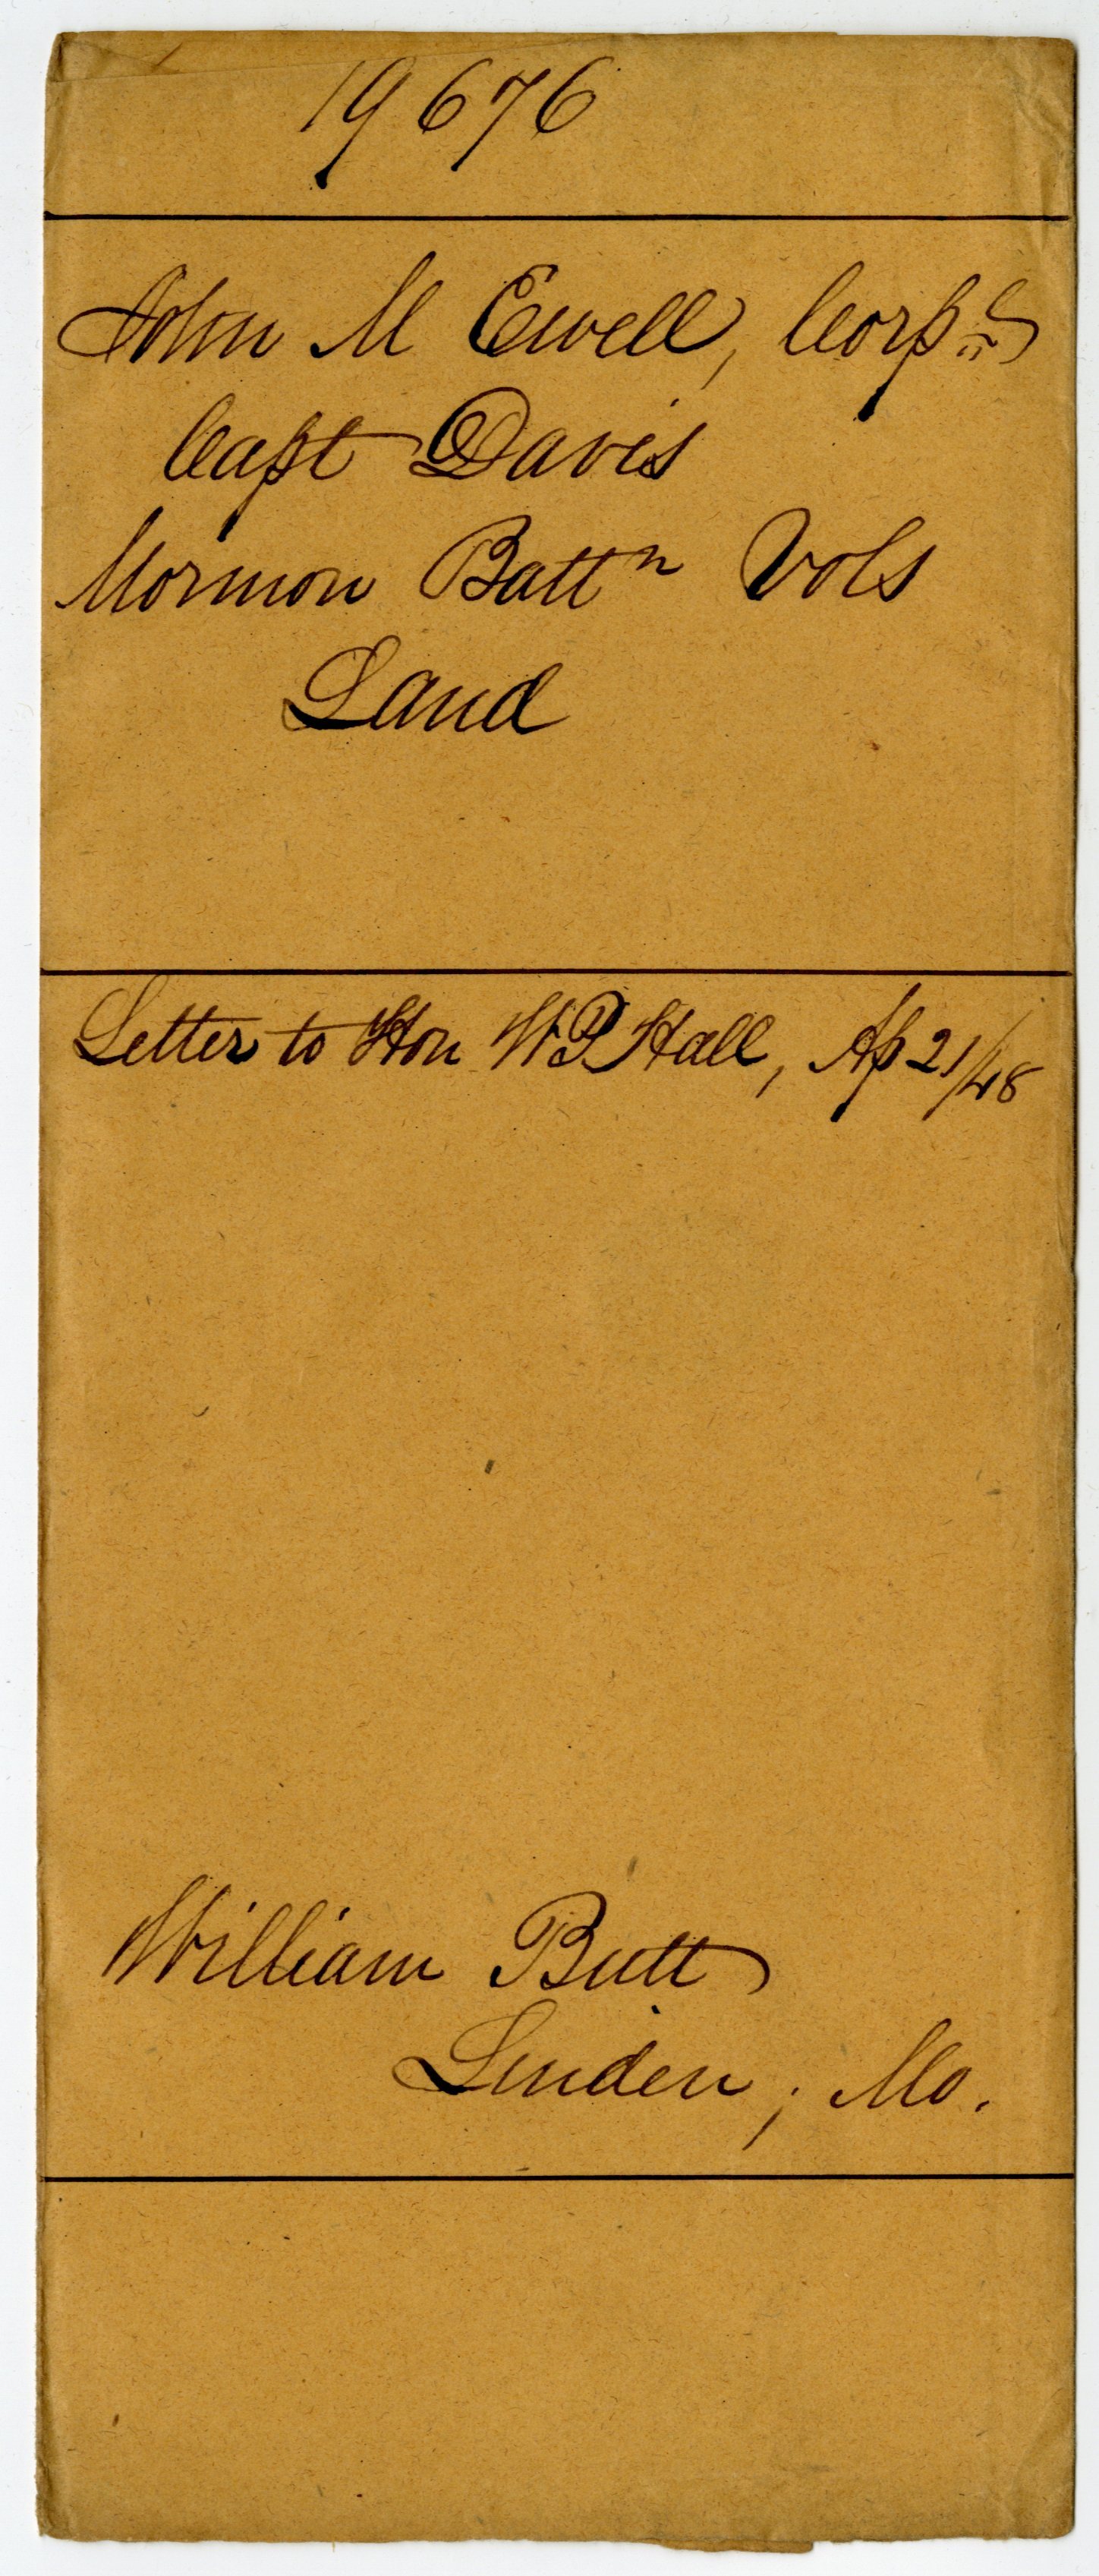 19676
John M Ewell, Corpl
Capt Davis
Mormon Battn Vols
Land
Letter to Hon W P Hall, Ap 21/48
William Butt
Linden, Mo.